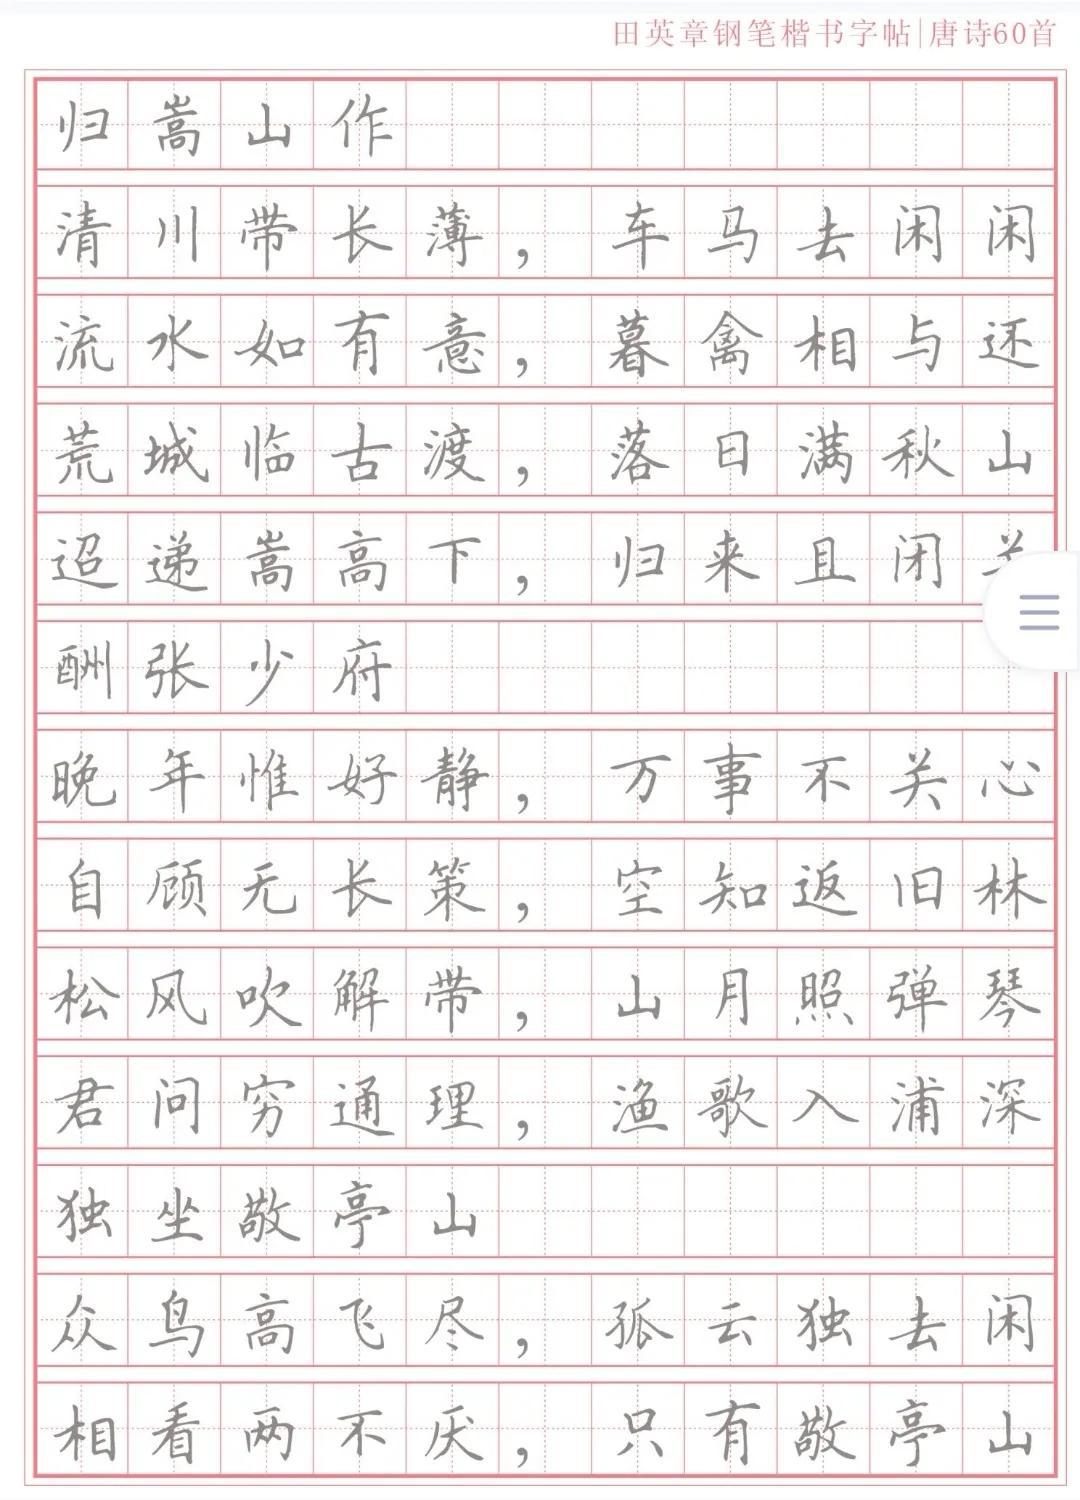 田英章钢笔楷书字帖|唐诗60首
归嵩山作
清川带长薄，车马去闲闲
流水如有意，暮禽相与还
荒城临古渡，落日满秋山
迢递嵩高下，归来且闭
酬张少府
晚年惟好静，万事不关心
自顾无长策，空知返旧林
松风吹解带，山月照弹琴
君问穷通理，渔歌入浦深
独坐敬亭山
众鸟高飞尽，孤云独去闲
相看两不厌，只有敬亭山